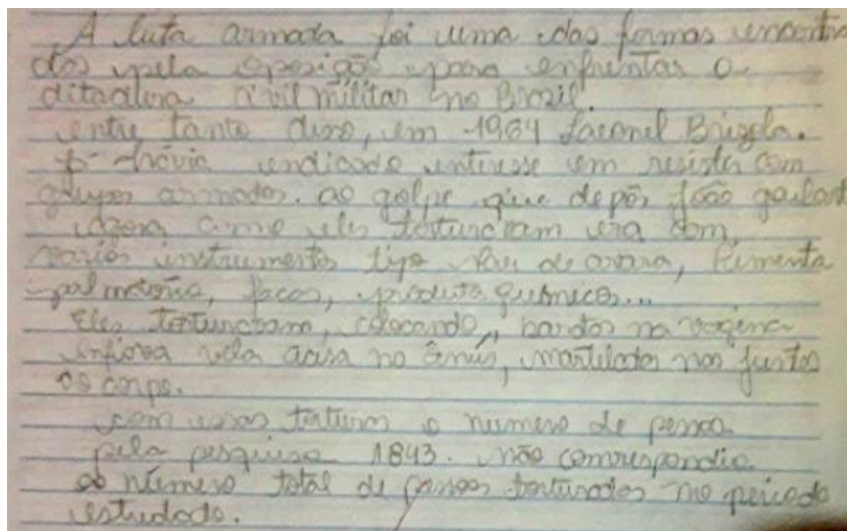 A luta armada foi uma das formas encontra
das pela oposição para enfrentar a
ditadura civil militar no Brasil.
entre tanto disso, em 1964 Leonel Brizola.
já havia indicado interesse em resistir com
grupos armados. ao golpe que depôs João goulart
agora como eles torturaram era com,
varios instrumentos tipo Pau de arara, Pimenta
palmatória, facas, produta químicos...
Eles torturaram, colocando, baratas na vagina
enfiava vela acesa no ânus, marteladas nas juntas
do corpo.
com essas torturas o numero de pessoa
pela pesquisa 1843. não correspondia
ao número total de pessoas torturadas no período
estudado.